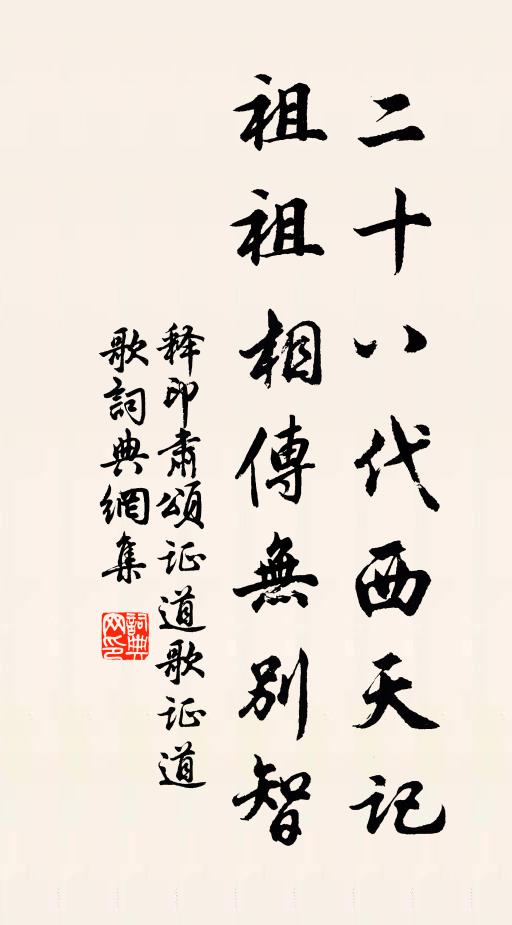 二十八代西天记
祖祖相傳無別智
释印肃頌证道歌证道
歌詞典網集
詞典网印